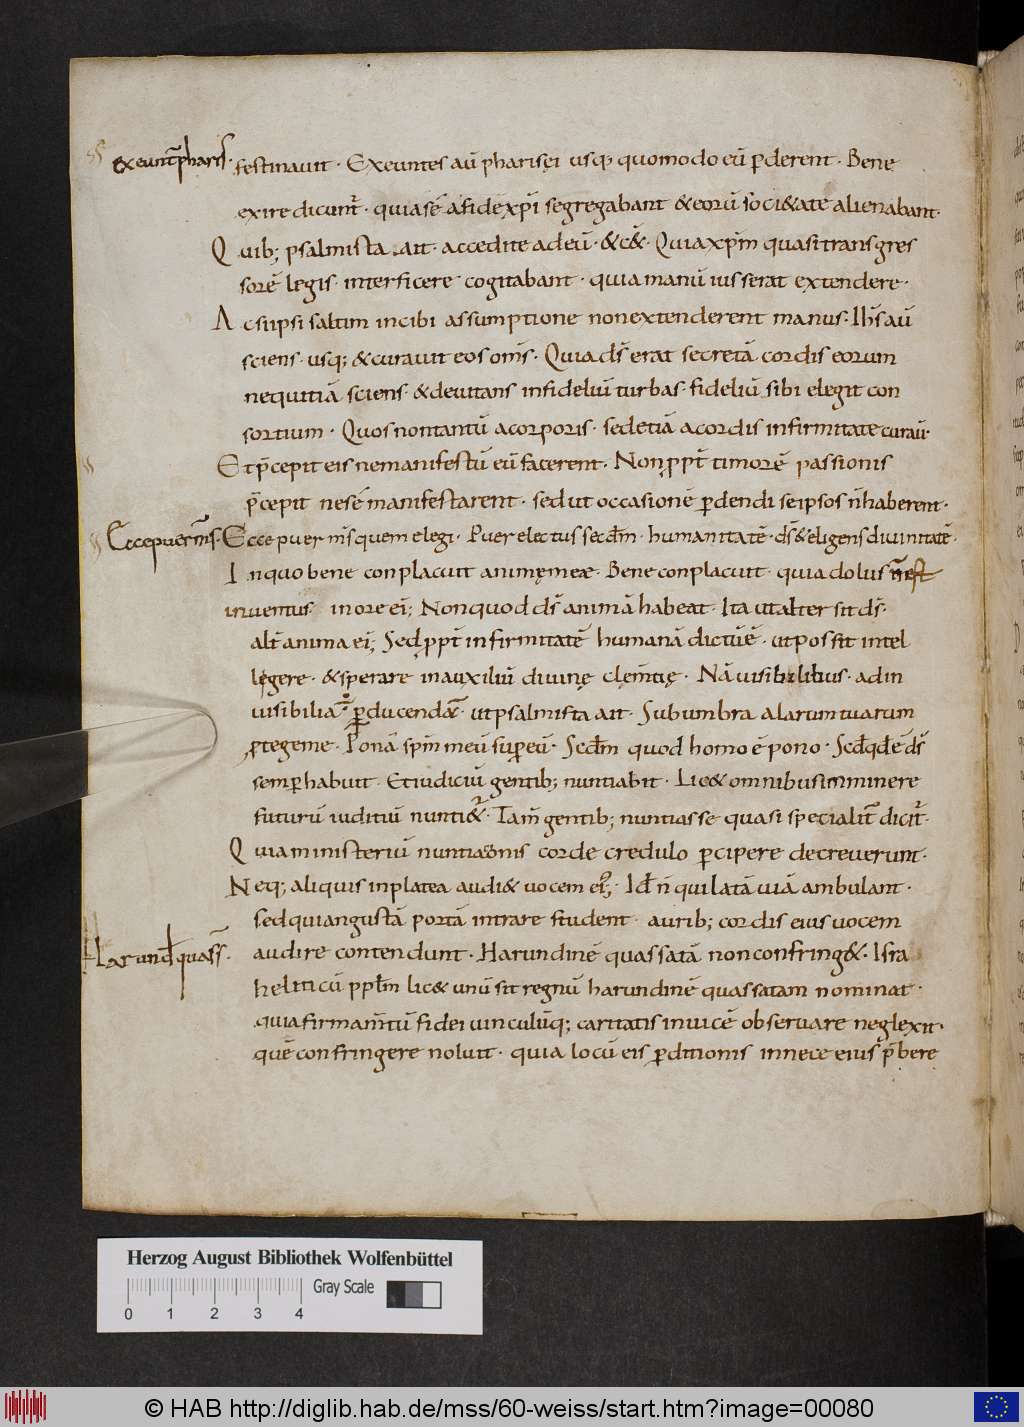 exeunt̄ pharis̄.
festinauit · Exeuntes aū pharisęi usq; quomodo eū p̄derent · Bene
exire dicunt̄ · quia sē a fide xp̄i segregabant & eorū soci&ate alienabant·
Quib; psalmista ait · accedite ad eū · & c&̄ · Quia xp̄m quasi transgres
sorē legis · interficere cogitabant · quia manū iusserat extendere ·
Ac si ipsi saltim in cibi assumptione non extenderent manus · Ih̄s aū
sciens · usq; & curauit eos om̄s · Quia ds̄ erat secreta cordis eorum
nequitiā sciens · & deuitans infideliū turbas · fideliū sibi elegit con
sortium · Quos non tantū a corporis · sed etiā a cordis infirmitate curau̅·
Et p̄cepit eis ne manifestū eū facerent · Non ꝓpt̄ timorē passionis
p̄cepit ne sē manifestarent · sed ut occasionē p̄dendi se ipsos n̄ haberent ·
Ecce puer m̄s·
Ecce puer m̄s quem elegi · Puer electus secd̄m · humanitatē · ds̄ & eligens diuinitatē ·
In quo bene conplacuit animę meae · Bene conplacuit · quia dolus n̄ est
inuentus · in ore ei; Non quod ds̄ animā habeat · Ita ut alter sit ds̄ ·
alt̄ anima ei; Sed ꝓpt̄ infirmitatē humanā dictū ē · ut possit intel
legere · & sperare in auxiliū diuinę clem̄tię · Nā uisibilibus · ad in
uisibilia p̄ducendā · ut psalmista ait · Sub umbra alarum tuarum
ꝓtege me · Ponā sp̄m meū sup̄ eū · Secd̄m quod homo ē pono · Scd̄ qd̄ ē ds̄
semp̄ habuit · Et iudiciū gentib; nuntiabit · Lic& omnibus imminere
futurū iuditiū nunti&ur · Tam̄ gentib; nuntiasse quasi specialit̄ dicit̄ ·
Quia ministeriū nuntiationis corde credulo p̄cipere decreuerunt ·
Neq; aliquis in platea audi& uocem ei; · Id ē n̄ qui latā uiā ambulant ·
sed qui angustā portā intrare student · aurib; cordis eius uocem
Harund̄ quass̄ ·
audire contendunt · Harundinē quassatā non confring& · Isra
heliticū ppl̄m lic& unū sit regnū harundinē quassatam nominat ·
quia firmam̄tū fidei uinculūq; caritatis inuicē obseruare neglexit ·
quē confringere noluit · quia locū eis p̄ditionis in nece eius p̄bere
Herzog August Bibliothek Wolfenbüttel
Gray Scale
0 1 2 3 4
© HAB http://diglib.hab.de/mss/60-weiss/start.htm?image=00080